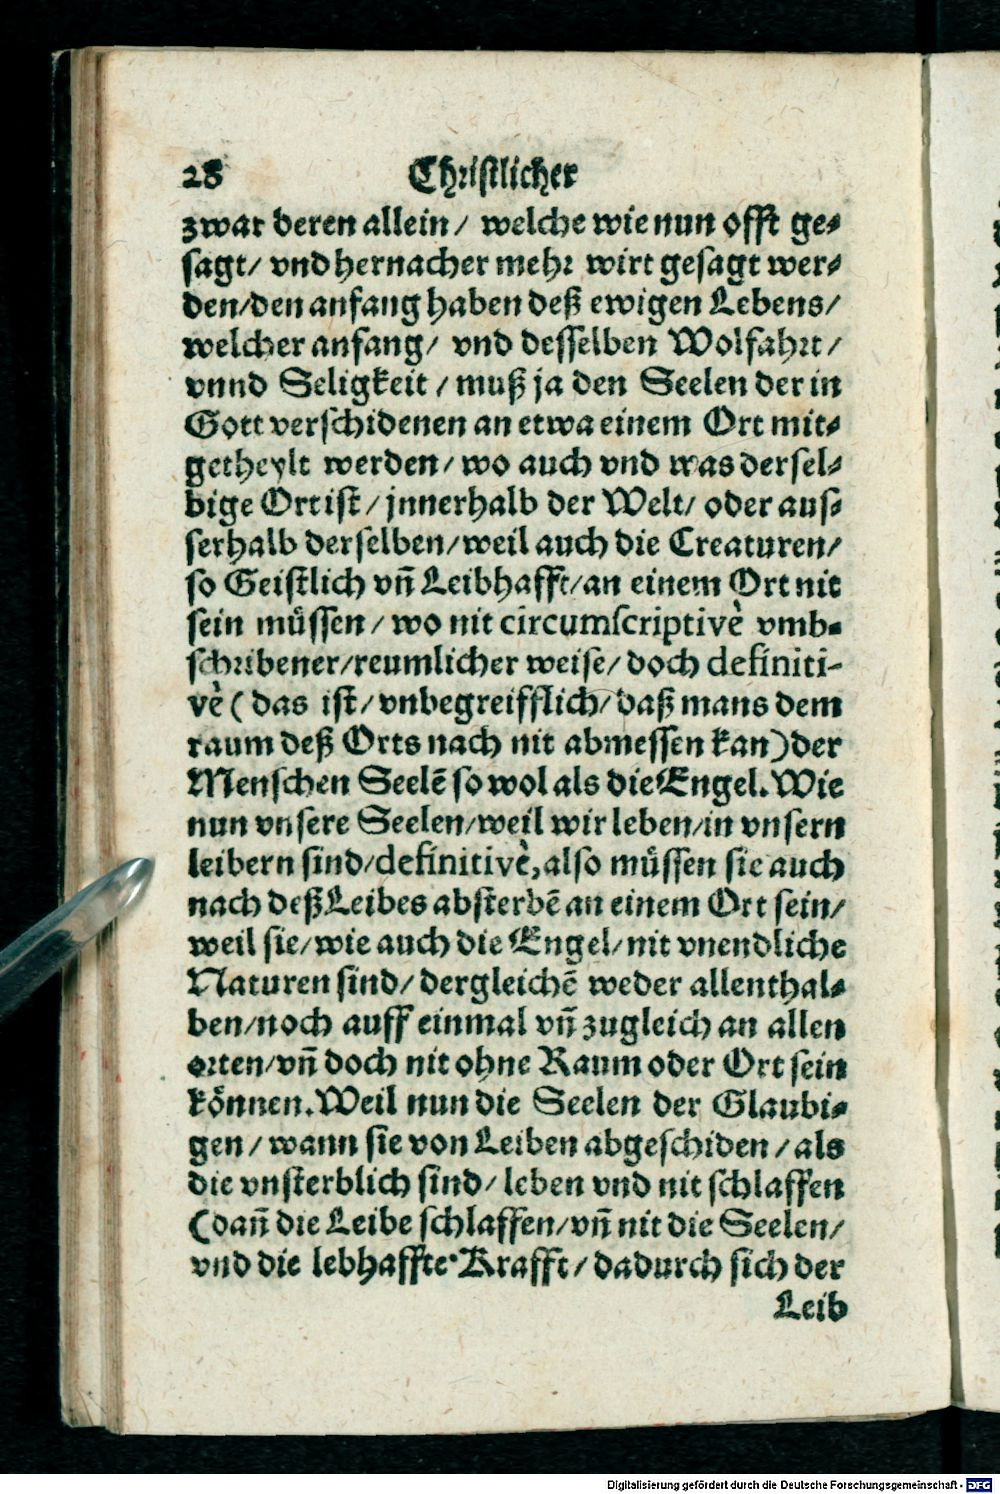 28 Christlicher
zwar deren allein / welche wie nun offt ge⸗
sagt / vnd hernacher mehr wirt gesagt wer⸗
den / den anfang haben deß ewigen Lebens /
welcher anfang / vnd desselben Wolfahrt /
vnnd Seligkeit / muß ja den Seelen der in
Gott verschidenen an etwa einem Ort mit⸗
getheylt werden / wo auch vnd was dersel⸗
bige Ort ist / jnnerhalb der Welt / oder aus⸗
serhalb derselben / weil auch die Creaturen /
so Geistlich vn̄ Leibhafft / an einem Ort nit
sein müssen / wo nit circumscriptivè vmb⸗
schribener / reumlicher weise / doch definiti-
vè ( das ist / vnbegreifflich / daß mans dem
raum deß Orts nach nit abmessen kan ) der
Menschen Seelē so wol als die Engel. Wie
nun vnsere Seelen / weil wir leben / in vnsern
leibern sind / definitivè, also müssen sie auch
nach deß Leibes absterbē an einem Ort sein /
weil sie / wie auch die Engel / nit vnendliche
Naturen sind / dergleichē weder allenthal⸗
ben / noch auff einmal vn̄ zugleich an allen
orten / vn̄ doch nit ohne Raum oder Ort sein
können. Weil nun die Seelen der Glaubi⸗
gen / wann sie von Leiben abgeschiden / als
die vnsterblich sind / leben vnd nit schlaffen
(dan̄ die Leibe schlaffen / vn̄ nit die Seelen /
vnd die lebhaffte Krafft / dadurch sich der
Leib
Digitalisierung gefördert durch die Deutsche Forschungsgemeinschaft - DFG